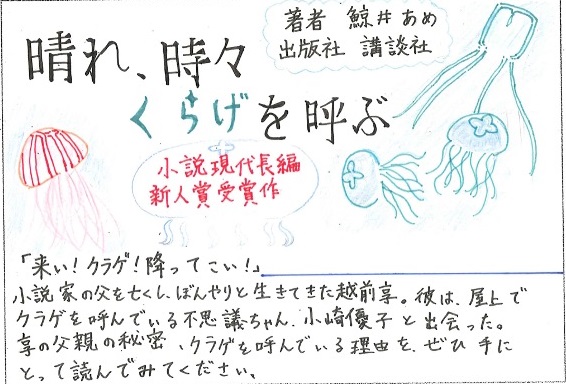 著者 鯨井あめ
出版社 講談社
晴れ、時々
くらげを呼ぶ
小説現代長編
新人賞受賞作
「来い！クラゲ！降ってこい！」
小説家の父を亡くし、ぼんやりと生きてきた越前享。彼は、屋上で
クラゲを呼んでいる不思議ちゃん、小崎優子と出会った。
享の父親の秘密、クラゲを呼んでいる理由を、ぜひ手に
とって読んでみてください。